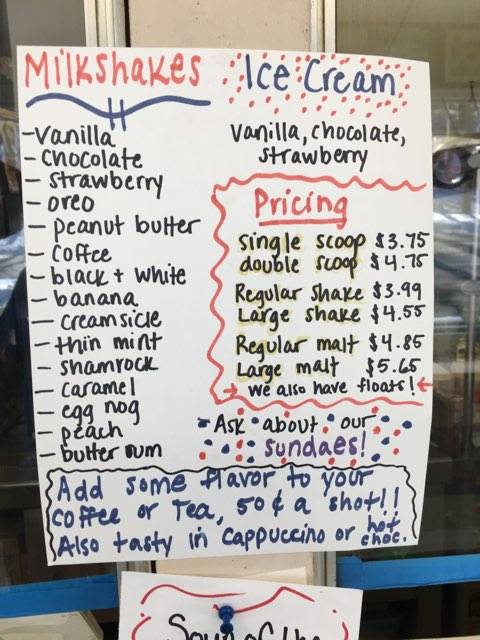 Milkshakes
-Vanilla
- Chocolate
- Strawberry
- oreo
- peanut butter
- Coffee
- black + white
- banana
- creamsicle
- thin mint
- shamrock
- caramel
- egg nog
- peach
- butter rum
Ice Cream
Vanilla, chocolate,
strawberry
Pricing
single scoop $3.75
double scoop $4.75
Regular Shake $3.99
Large shake $4.55
Regular malt $4.85
Large malt $5.65
→ we also have floats! ←
Ask about our
sundaes!
Add some flavor to your
coffee or Tea, 50¢ a shot!!
Also tasty in cappuccino or hot choc.
Soup of the